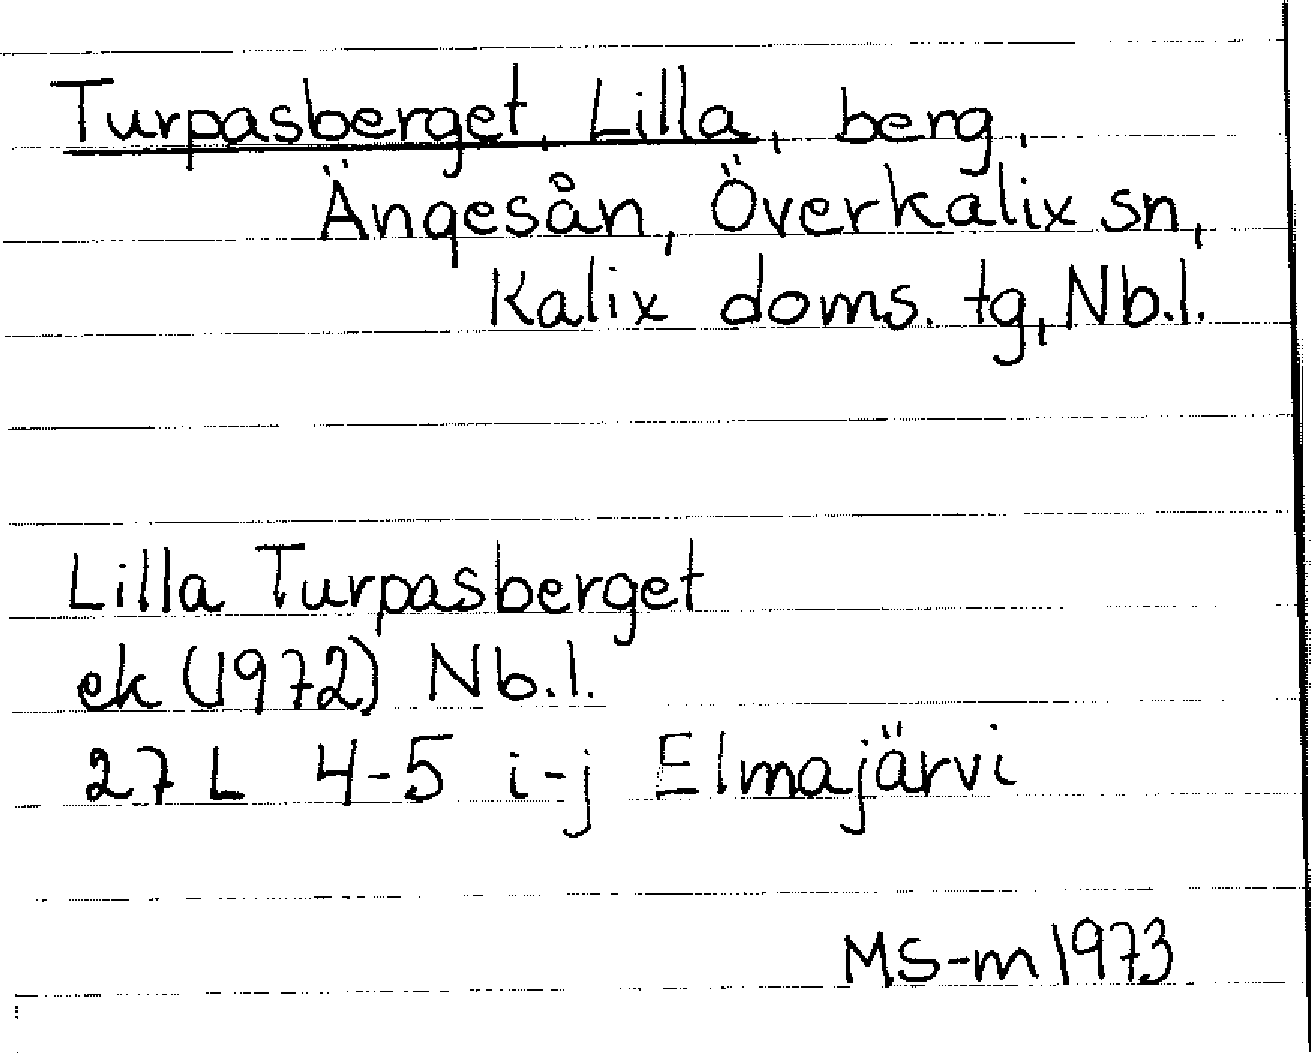 Turpasberget, Lilla, berg,
Ängesån, Överkalix sn,
Kalix doms. tg, Nb.l.
Lilla Turpasberget
ek (1972) Nb.l.
27 L 4-5 i-j Elmajärvi
MS-m 1973